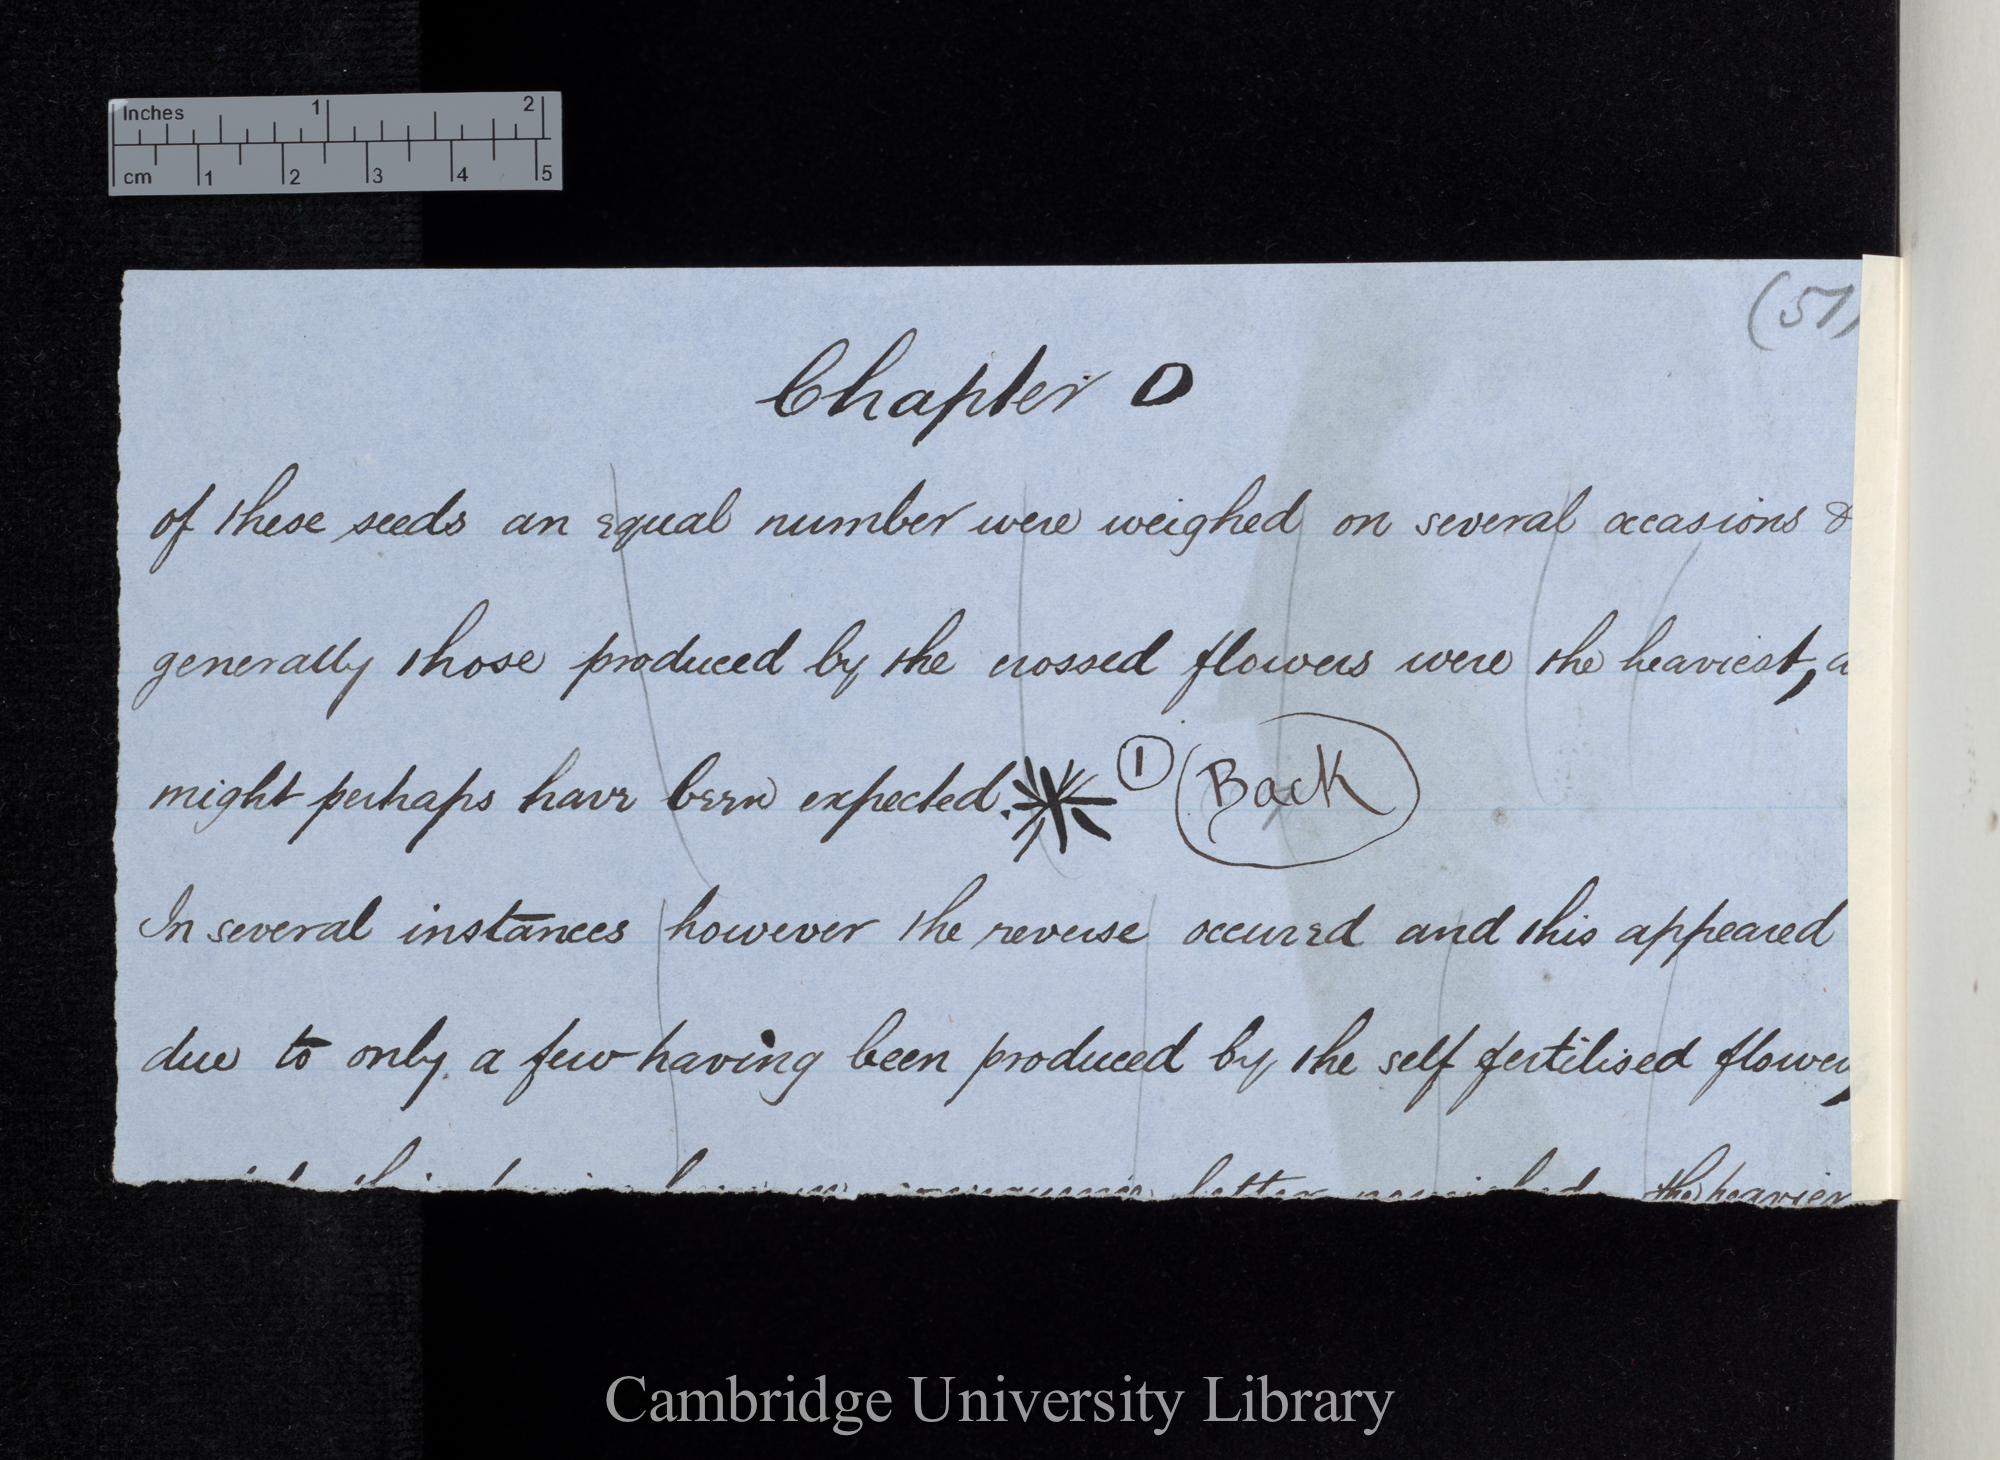 Inches 1 2
cm 1 2 3 4 5
(51)
Chapter D
of these seeds an equal number were weighed on several occasions &
generally those produced by the crossed flowers were the heaviest, a
might perhaps have been expected. ① Back
In several instances however the reverse occured and this appeared
due to only a few having been produced by the self fertilised flowers,
better nourished the heavier
Cambridge University Library